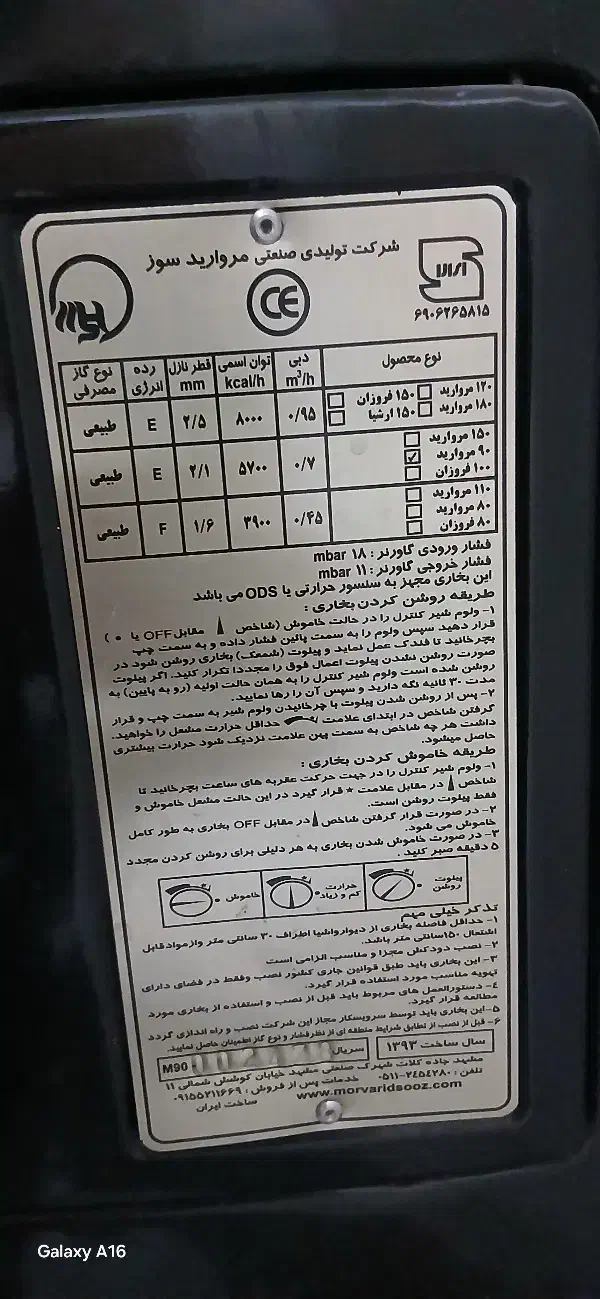 شرکت تولیدی صنعتی مروارید سوز
CE
۶۹۰۶۲۶۵۸۱۵
نوع محصول دبی m³/h توان اسمی kcal/h قطر نازل mm رده انرژی نوع گاز مصرفی
۱۲۰ مروارید ۱۵۰ فروزان
۱۸۰ مروارید ۱۵۰ ارشیا
۰/۹۵ ۸۰۰۰ ۲/۵ E طبیعی
۱۵۰ مروارید
۹۰ مروارید ✓
۱۰۰ فروزان
۰/۷ ۵۷۰۰ ۲/۱ E طبیعی
۱۱۰ مروارید
۸۰ مروارید
۸۰ فروزان
۰/۴۵ ۳۹۰۰ ۱/۶ F طبیعی
فشار ورودی گاورنر : ۱۸ mbar
فشار خروجی گاورنر : ۱۱ mbar
این بخاری مجهز به سنسور حرارتی یا ODS می باشد
طریقه روشن کردن بخاری :
۱- ولوم شیر کنترل را در حالت خاموش (شاخص مقابل OFF یا ● )
قرار دهید سپس ولوم را به سمت پائین فشار داده و به سمت چپ
بچرخانید تا فندک عمل نماید و پیلوت (شمعک) بخاری روشن شود در
صورت روشن نشدن پیلوت اعمال فوق را مجددا تکرار کنید. اگر پیلوت
روشن شده است ولوم شیر کنترل را به همان حالت اولیه (رو به پایین) به
مدت ۳۰ ثانیه نگه دارید و سپس آن را رها نمایید.
۲- پس از روشن شدن پیلوت با چرخانیدن ولوم شیر به سمت چپ و قرار
گرفتن شاخص در ابتدای علامت حداقل حرارت مشعل را خواهید.
داشت هر چه شاخص به سمت پهن علامت نزدیک شود حرارت بیشتری
حاصل میشود.
طریقه خاموش کردن بخاری :
۱- ولوم شیر کنترل را در جهت حرکت عقربه های ساعت بچرخانید تا
شاخص در مقابل علامت * قرار گیرد در این حالت مشعل خاموش و
فقط پیلوت روشن است.
۲- در صورت قرار گرفتن شاخص در مقابل OFF بخاری به طور کامل
خاموش می شود.
۳- در صورت خاموش شدن بخاری به هر دلیلی برای روشن کردن مجدد
۵ دقیقه صبر کنید .
پیلوت روشن حرارت کم و زیاد خاموش
تذکر خیلی مهم
۱- حداقل فاصله بخاری از دیوار واشیا اطراف ۳۰ سانتی متر وازمواد قابل
اشتعال ۱۵۰ سانتی متر باشد.
۲- نصب دودکش مجزا و مناسب الزامی است
۳- این بخاری باید طبق قوانین جاری کشور نصب وفقط در فضای دارای
تهویه مناسب مورد استفاده قرار گیرد.
۴- دستورالعمل های مربوط باید قبل از نصب و استفاده از بخاری مورد
مطالعه قرار گیرد.
۵- این بخاری باید توسط سرویسکار مجاز این شرکت نصب و راه اندازی گردد
۶- قبل از نصب از تطابق شرایط منطقه ای از نظر فشار و نوع گاز اطمینان حاصل نمایید.
سال ساخت ۱۳۹۳ سریال M90
مشهد جاده کلات شهرک صنعتی مشهد خیابان کوشش شمالی ۱۱
تلفن : ۲۴۵۴۲۸۰-۰۵۱۱ خدمات پس از فروش : ۰۹۱۵۵۲۱۱۶۶۹
www.morvaridsooz.com ساخت ایران
Galaxy A16